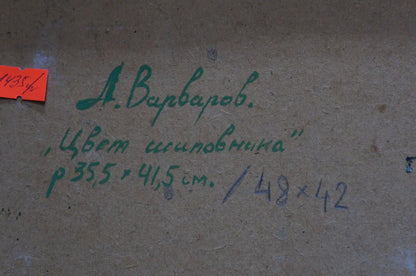 А. Варваров.
„Цвет шиповника"
р 35,5 × 41,5 см. / 48 × 42